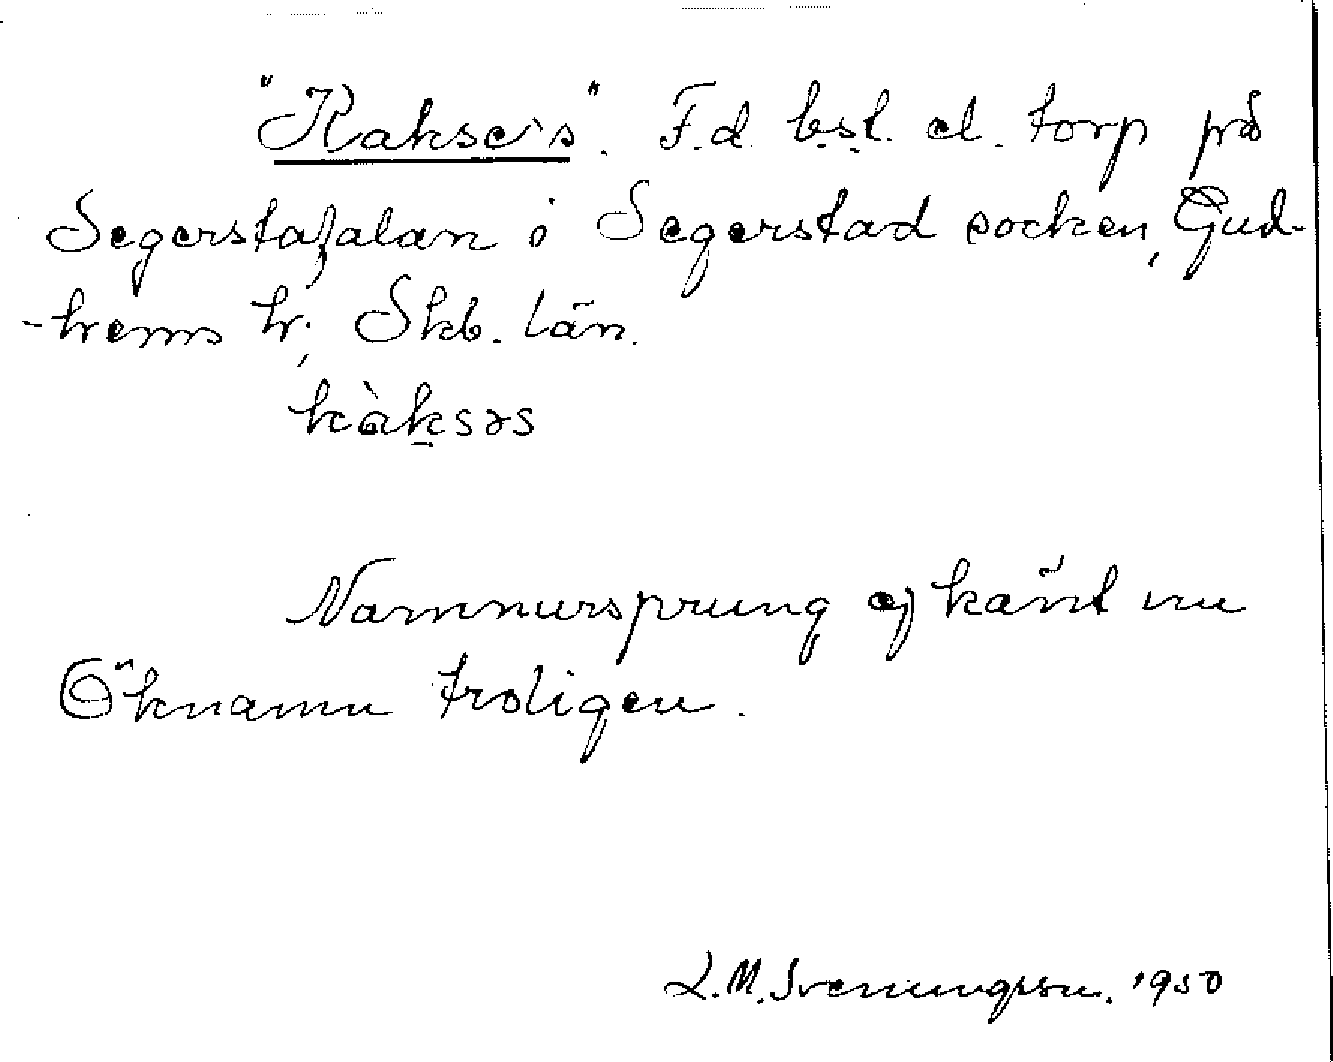 "Kakse's". F.d. b.s.t. el. torp på
Segerstafalan i Segerstad socken, Gud-
-hems hr; Skb. län.
kàksəs
Namnursprung ej känt nu
Öknamn troligen.
L.M. Svenungsson. 1950